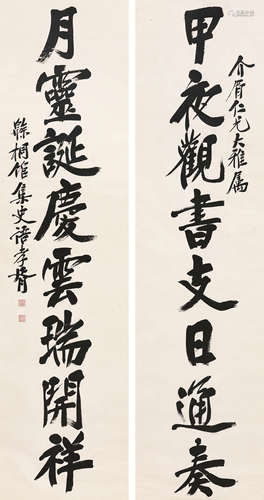 介眉仁兄大雅属
甲夜觀書支日通奏
月靈誕慶雲瑞開祥
桐館集史語孝胥